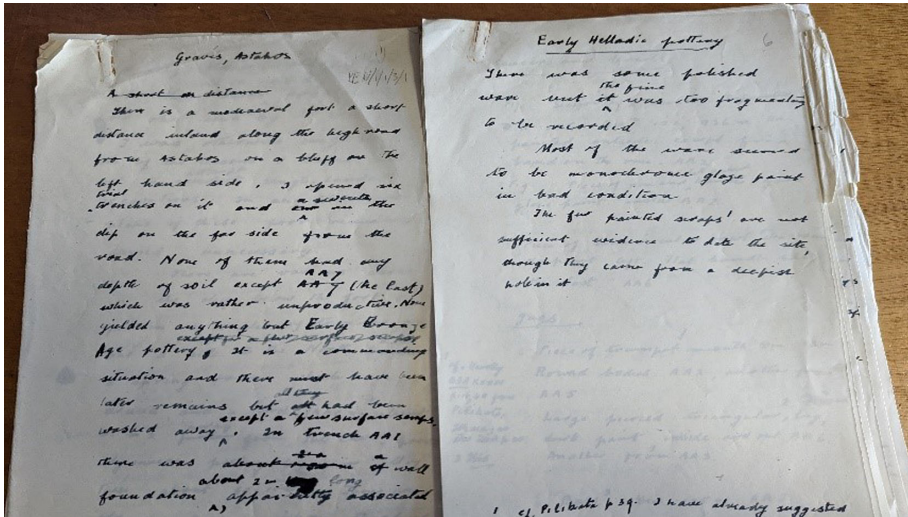 Gravis, Astakos
A short in distance
There is a mediaeval fort a short
distance inland along the high road
from Astakos on a bluff on the
left hand side. I opened six
trial
trenches on it and one in the
a seventh
dip on the far side from the
road. None of them had any
depth of soil except AA7 (the last)
AA7
which was rather unproductive. None
yielded anything but Early Bronze
except for a few surface scraps
Age pottery. It is a commanding
situation and there must have been
later remains but all had been
all they
washed away except a few surface scraps.
In trench AA1
there was about in of wall
about 2 m long
foundation associated
Early Helladic pottery
6
There was some polished
ware but it was too fragmentary
the fine
to be recorded
Most of the ware seemed
to be monochrome glaze paint
in bad condition
The few painted scraps¹ are not
sufficient evidence to date the site,
though they came from a deepish
hole in it
1 cf. Pilikata p 39. I have already suggested